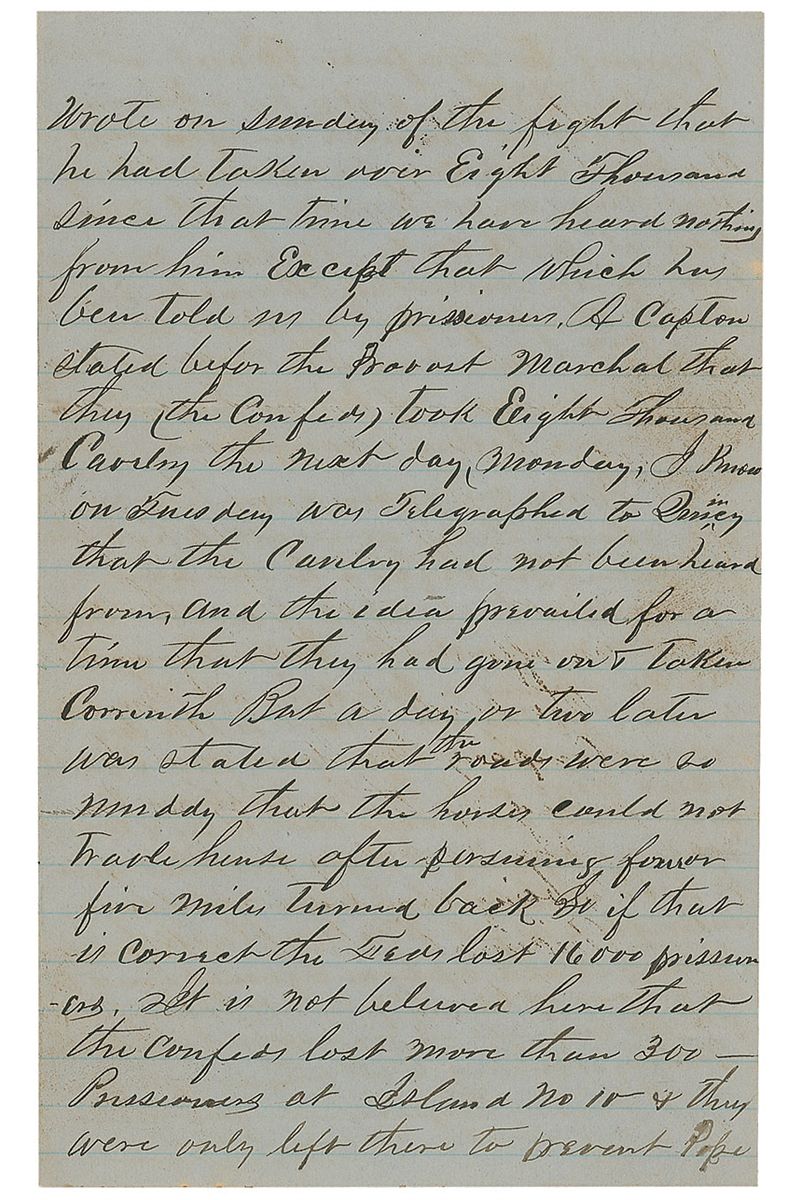 Wrote on Sunday of the fight that
he had taken over Eight Thousand
since that time we have heard nothing
from him Except that which has
ben told us by prissioners. A Capton
stated befor the Provost Marchal that
they (the Confeds) took Eeight Thousand
Cavelry the next day, Monday, I Know
on Tuesday was Telegraphed to
that the Cavelry had not been heard
from, and the idea prevailed for a
time that they had gone on & taken
Correnth But a day or two later
was stated that the roads were so
muddy that the horses could not
travle hense after persuing four or
five miles turned back So if that
is correct the Feds lost 16000 prission
-ers. It is not beleived here that
the Confeds lost more than 300 —
Prissioners at Island No 10 & they
were only left there to prevent Pope